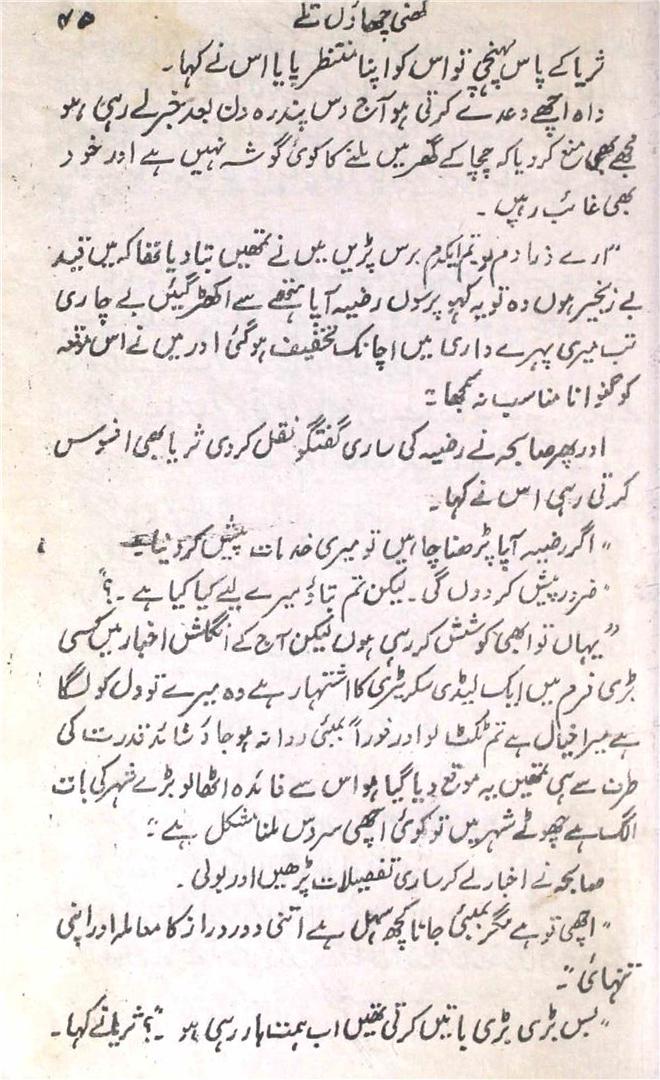 گھنی چھاؤں تلے ۷۵
ثریا کے پاس پہنچی تو اس کو اپنا منتظر پایا اس نے کہا۔
واہ اچھے وعدے کرتی ہو آج دس پندرہ دن بعد خبر لے رہی ہو
مجھے بھی منع کر دیا کہ چچا کے گھر میں ملنے کا کوئی گوشہ نہیں ہے اور خود
بھی غائب رہیں۔
"ارے ذرا دم لو تم ایکدم برس پڑیں میں نے تمھیں بتا دیا تھا کہ میں قید
بے زنجیر ہوں وہ تو یہ کہو پرسوں رضیہ آپا ہتھے سے اکھڑ گئیں بے چاری
تب میری پہرے داری میں اچانک تخفیف ہو گئی اور میں نے اس موقعہ
کو گنوانا مناسب نہ سمجھا"
اور پھر صابحہ نے رضیہ کی ساری گفتگو نقل کر دی ثریا بھی افسوس
کرتی رہی اس نے کہا۔
"اگر رضیہ آپا پڑھنا چاہیں تو میری خدمات پیش کر دینا۔
"ضرور پیش کر دوں گی۔ لیکن تم بتاؤ میرے لیے کیا کیا ہے۔؟"
"یہاں تو ابھی کوشش کر رہی ہوں لیکن آج کے انگلش اخبار میں کسی
بڑی فرم میں ایک لیڈی سکریٹری کا اشتہار ہے وہ میرے تو دل کو لگا
ہے میرا خیال ہے تم ٹکٹ لو اور فوراً بمبئی روانہ ہو جاؤ شائد قدرت کی
طرف سے ہی تمھیں یہ موقع دیا گیا ہو اس سے فائدہ اٹھا لو بڑے شہر کی بات
الگ ہے چھوٹے شہر میں تو کوئی اچھی سروس ملنا مشکل ہے"
صابحہ نے اخبار لے کر ساری تفصیلات پڑھیں اور بولی۔
"اچھی تو ہے مگر بمبئی جانا کچھ سہل ہے اتنی دور دراز کا معاملہ اور اپنی
تنہائی"۔
"بس بڑی بڑی باتیں کرتی تھیں اب ہمت ہار رہی ہو۔؟" ثریا نے کہا۔